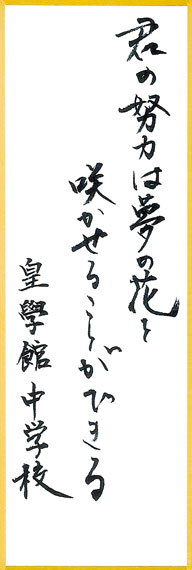 君の努力は夢の花を
咲かせることができる
皇學館中学校